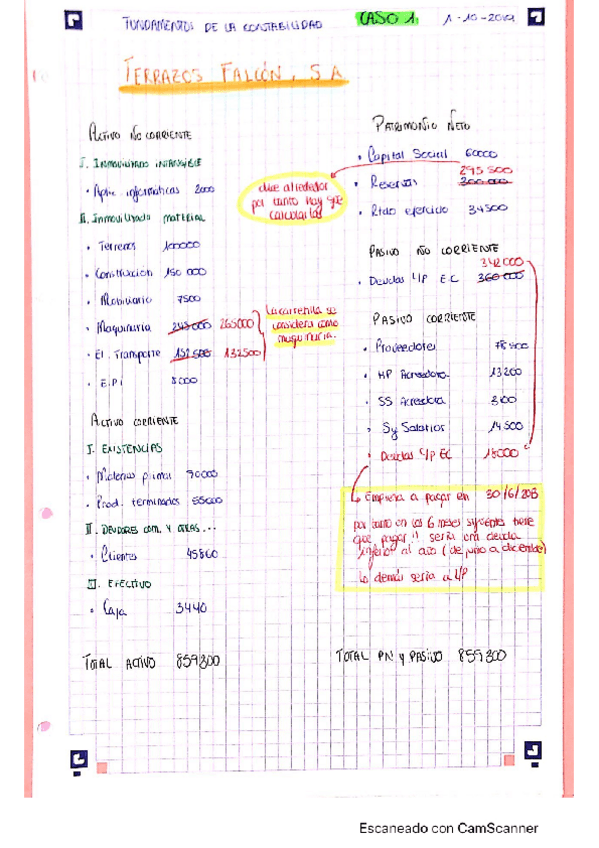 FUNDAMENTOS DE LA CONTABILIDAD
CASO 1.
1-10-2019
TERRAZOS FALCÓN, S.A.
ACTIVO NO CORRIENTE
I. INMOVILIZADO INTANGIBLE
• Aplic. informáticas 2000
II. Inmovilizado material
• Terrenos 100000
• Construcción 150 000
• Mobiliario 7500
• Maquinaria 245000 265000
• El. Transporte 152500 132500
• E.P.I 8000
La carretilla se
considera como
maquinaria.
ACTIVO CORRIENTE
I. EXISTENCIAS
• Materias primas 90000
• Prod. terminados 55000
II. DEUDORES COM. Y OTRAS...
• Clientes 45860
III. EFECTIVO
• Caja 3440
TOTAL ACTIVO 859300
PATRIMONIO NETO
• Capital Social 60000
295 500
• Reservas 300 000
• Rtdo ejercicio 34500
dice alrededor
por tanto hay que
calcularlas
PASIVO NO CORRIENTE
342000
• Deudas L/P E.C 360 000
PASIVO CORRIENTE
• Proveedores 78500
• HP Acreedora 13200
• SS Acreedora 3100
• Sy Salarios 14500
• Deudas C/P EC 18000
Empresa a pagar en 30/6/20B
por tanto en los 6 meses siguientes tiene
que pagar y sería una deuda
inferior al año (de junio a diciembre)
lo demás sería a L/P
TOTAL PN y PASIVO 859300
Escaneado con CamScanner